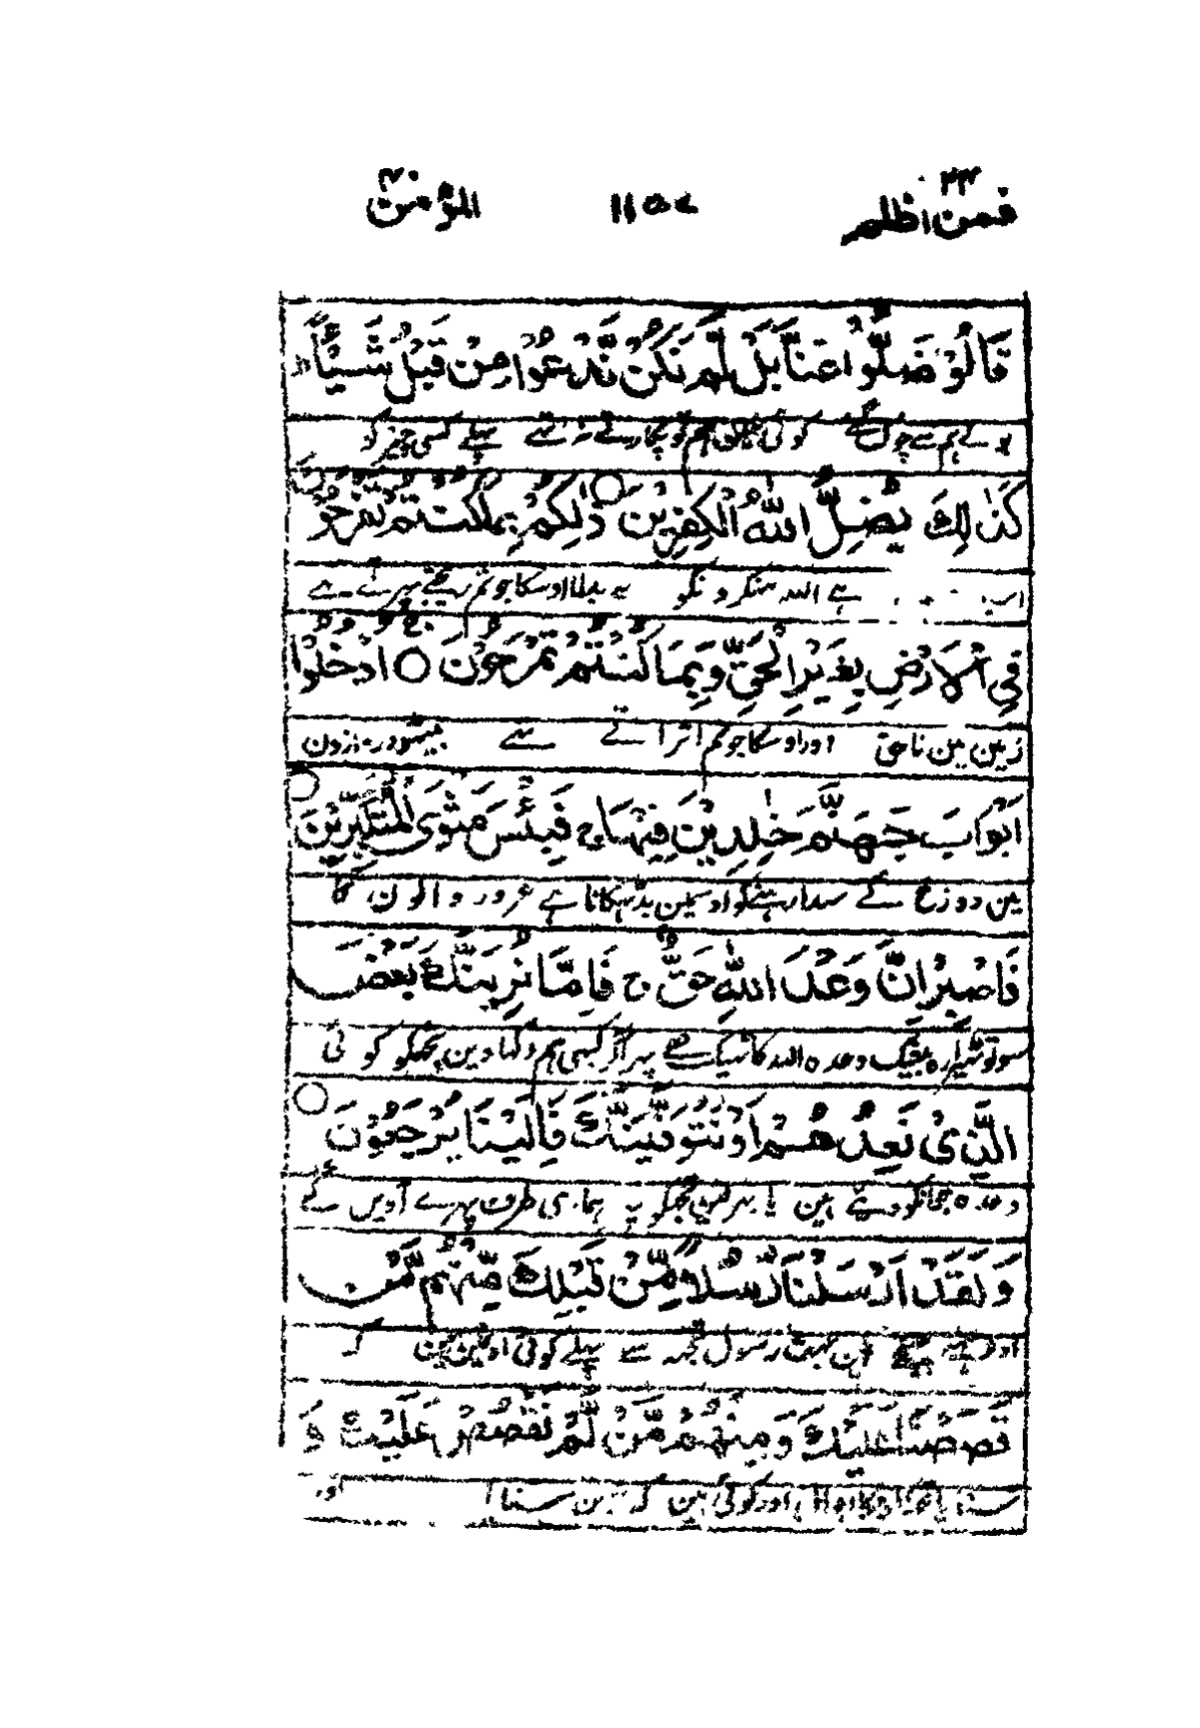 فمن اظلم ۲۴ ۱۱۵۷ المؤمن ۴۰
قَالُوْا ضَلُّوْا عَنَّا بَلْ لَّمْ نَكُنْ نَّدْعُوْا مِنْ قَبْلُ شَيْـًٔا ؕ
بولے ہم سے چوک گئے کوئی نہیں ہم تو پکارتے نہ تھے پہلے کسی چیز کو
كَذٰلِكَ يُضِلُّ اللّٰهُ الْكٰفِرِيْنَ ○ ذٰلِكُمْ بِمَا كُنْتُمْ تَفْرَحُوْنَ
ہے اللہ منکرونکو یہ بدلا اوسکا جو تم ریجھتے پھرتے تھے
فِي الْاَرْضِ بِغَيْرِ الْحَقِّ وَبِمَا كُنْتُمْ تَمْرَحُوْنَ ○ اُدْخُلُوْٓا
زمین مین ناحق اور اوسکا جو تم اتراتے تھے بیٹھو دروازون
اَبْوَابَ جَهَنَّمَ خٰلِدِيْنَ فِيْهَا ۚ فَبِئْسَ مَثْوَى الْمُتَكَبِّرِيْنَ ○
مین دوزخ کے سدا رہنے کو اوسمین بد ٹھکانا ہے غرور والون کا
فَاصْبِرْ اِنَّ وَعْدَ اللّٰهِ حَقٌّ ۚ فَاِمَّا نُرِيَنَّكَ بَعْضَ
سو تو ٹھیرا رہ بیشک وعدہ اللہ کا ٹھیک ہے پھر اگر کبھی ہم دکھا دین تجھکو کوئی
الَّذِيْ نَعِدُهُمْ اَوْ نَتَوَفَّيَنَّكَ فَاِلَيْنَا يُرْجَعُوْنَ ○
وعدہ جو انکو دیتے ہین یا بھر لیوین تجھکو پھر ہماری طرف پھرے آوین گے
وَلَقَدْ اَرْسَلْنَا رُسُلًا مِّنْ قَبْلِكَ مِنْهُمْ مَّنْ
اور ہمنے بھیجے ہین بہت رسول تجھ سے پہلے کوئی اونمین ہین کہ
قَصَصْنَا عَلَيْكَ وَمِنْهُمْ مَّنْ لَّمْ نَقْصُصْ عَلَيْكَ ؕ وَ
سنایا تجھکو اونکا احوال اور کوئی ہین کہ نہین سنایا اور